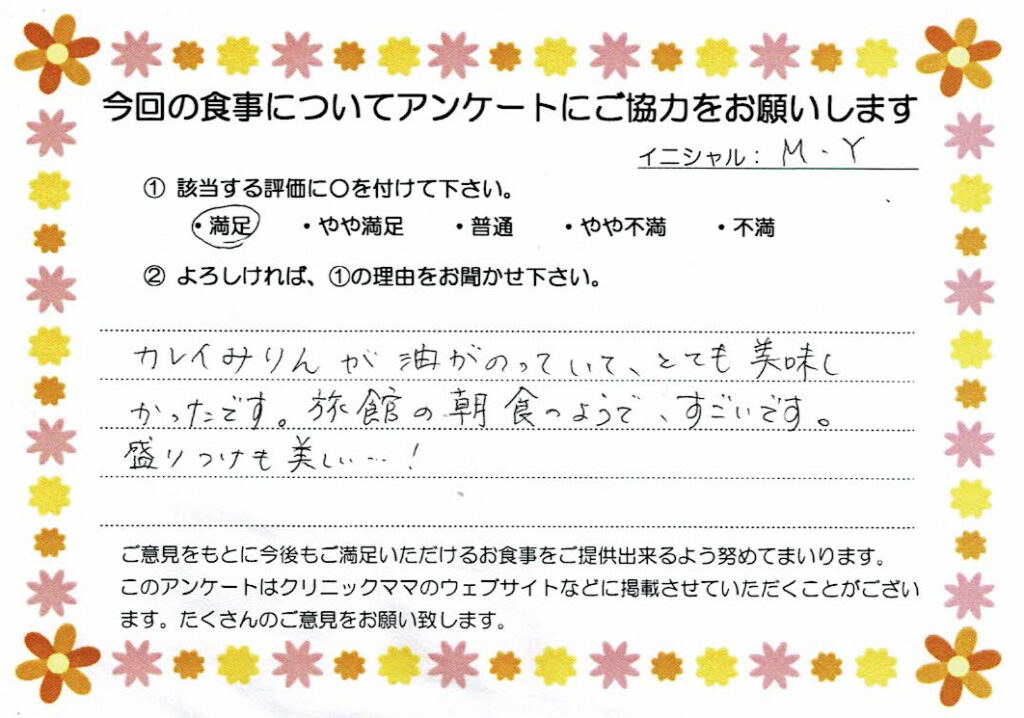 今回の食事についてアンケートにご協力をお願いします
イニシャル： M.Y
① 該当する評価に○を付けて下さい。
・満足 ・やや満足 ・普通 ・やや不満 ・不満
② よろしければ、①の理由をお聞かせ下さい。
カレイみりんが油がのっていて、とても美味し
かったです。旅館の朝食のようで、すごいです。
盛りつけも美しい…！
ご意見をもとに今後もご満足いただけるお食事をご提供出来るよう努めてまいります。
このアンケートはクリニックママのウェブサイトなどに掲載させていただくことがござい
ます。たくさんのご意見をお願い致します。